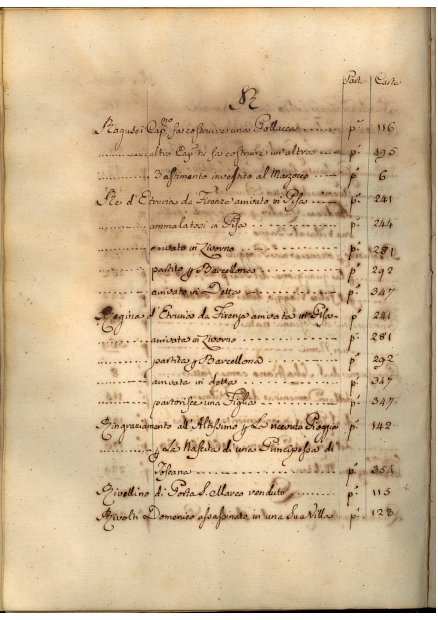 Parte Carte
R
Ragusei Cap.no fa costruire una Pollacca p.a 116
altro Cap.no fa costruire un'altra p.a 195
Bastimento investito al Marzocco p.a 6
Re d'Etruria da Firenze arrivato in Pisa p.a 241
ammalatosi in Pisa p.a 244
arrivato in Livorno p.a 281
partito p Barcellona p.a 292
arrivato in Detta p.a 347
Regina d'Etruria da Firenze arrivata in Pisa p.a 241
arrivata in Livorno p.a 281
partita p Barcellona p.a 292
arrivata in detta p.a 347
partorisce una Figlia p.a 347
Ringraziamento all'Altissimo p La ricevuta Pioggia p.a 142
p La Nascita di una Principessa di
Toscana p.a 354
Rivellino di Porta S. Marco venduto p.a 115
Rivolti Domenico assassinato in una Sua Villa p.a 123